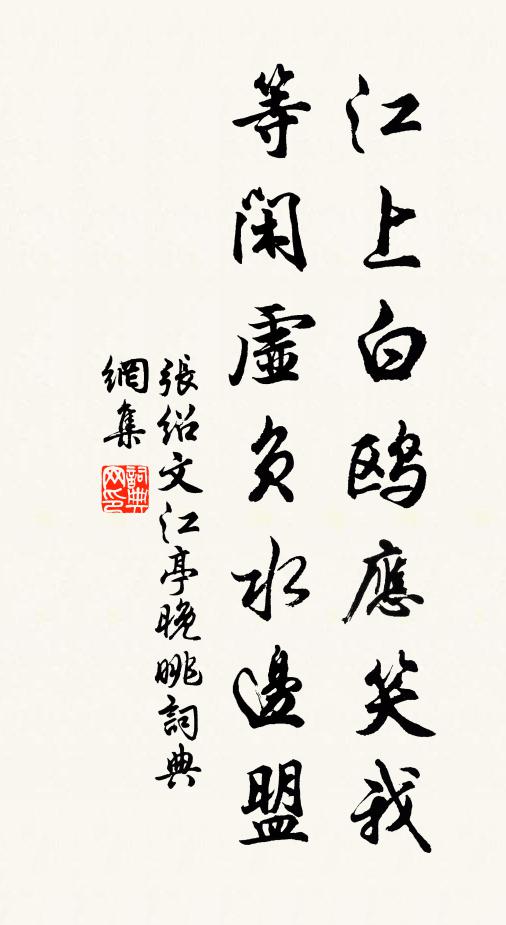 江上白鷗應笑我
等閑虛負水邊盟
張紹文江亭晚眺詞典
網集
詞典網印